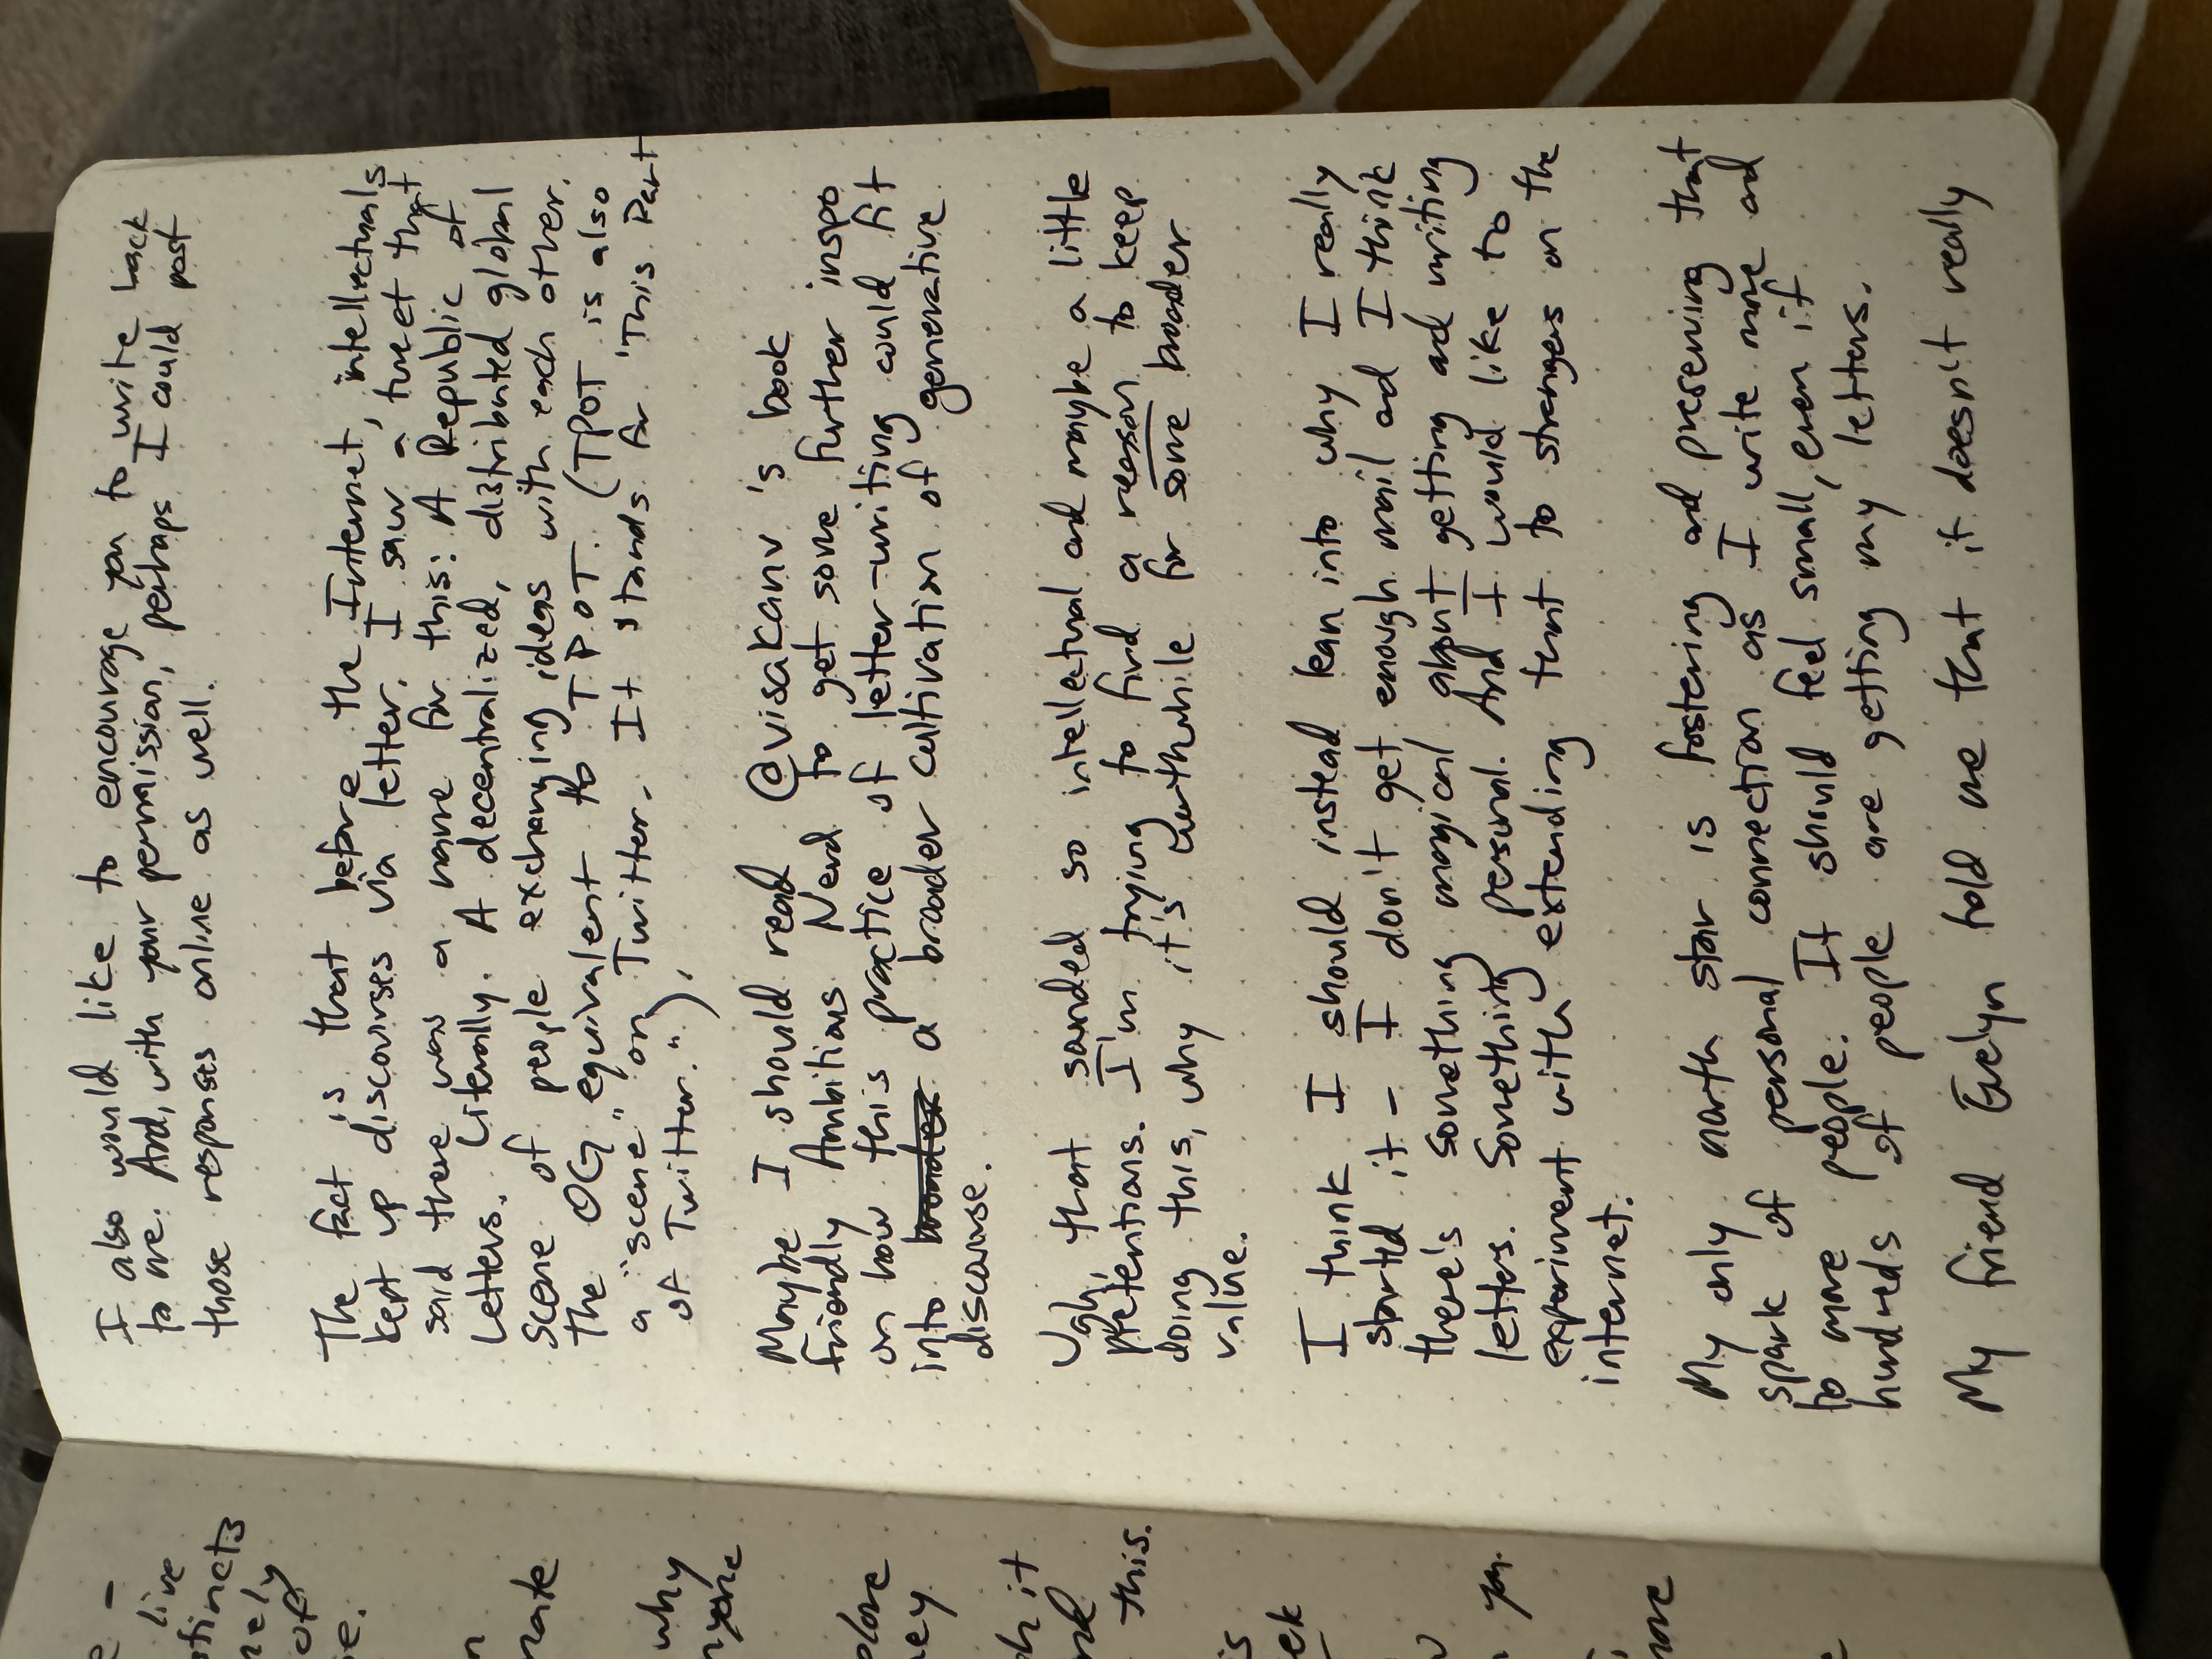 I also would like to encourage you to write back
to me. And, with your permission, perhaps I could post
those responses online as well.
The fact is that before the Internet, intellectuals
kept up discourses via letter. I saw a tweet that
said there was a name for this: A Republic of
Letters. Literally. A decentralized, distributed global
scene of people exchanging ideas with each other.
The OG equivalent to TPOT. (TPOT is also
a "scene" on Twitter. It stands for 'This Part
of Twitter.").
Maybe I should read @visakanv's book
Friendly Ambitious Nerd to get some further inspo
on how this practice of letter-writing could fit
into a broader cultivation of generative
discourse.
Ugh, that sounded so intellectual and maybe a little
pretentious. I'm trying to find a reason to keep
doing this, why it's worthwhile for some broader
value.
I think I should instead lean into why I really
started it - I don't get enough mail and I think
there's something magical about getting and writing
letters. Something personal. And I would like to
experiment with extending that to strangers on the
internet.
My only north star is fostering and preserving that
spark of personal connection as I write more and
to more people. It should feel small, even if
hundreds of people are getting my letters.
My friend Evelyn told me that it doesn't really
live
why
this.
you.
more